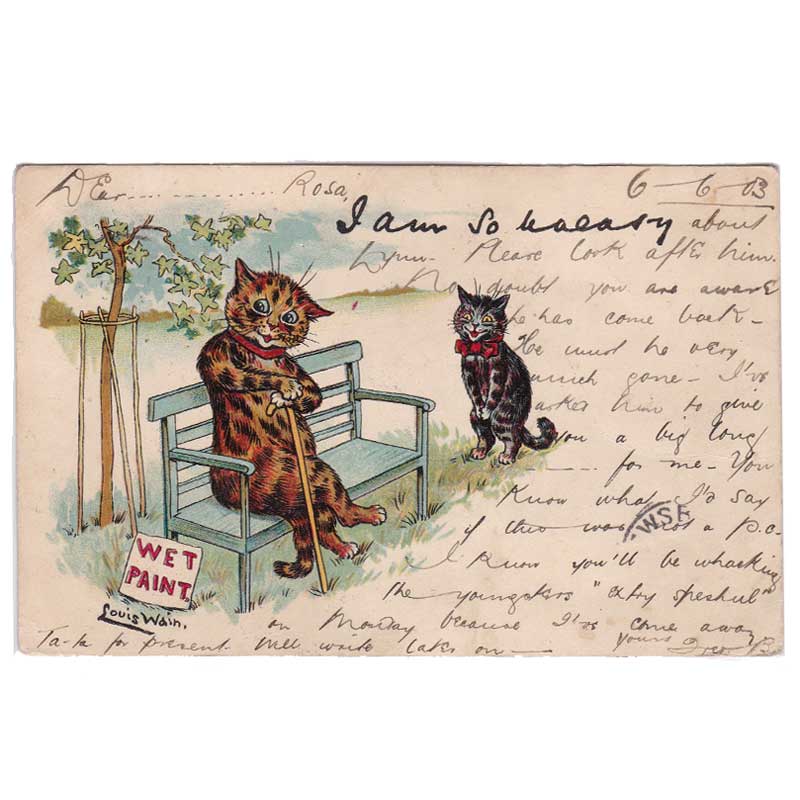 Dear.............. Rosa,
6-6-03
I am so uneasy about
Lynn- Please look after him.
No doubt you are aware
he has come back-
He must be very
much gone- I've
asked him to give
you a big long
—— for me- You
Know what I'd say
if this was not a p.c.
I Know you'll be whacking
the youngsters "extry speshul"
on Monday because I've come away
Ta-ta for present will write later on— yours
B.
WET
PAINT.
Louis Wain.
WSE